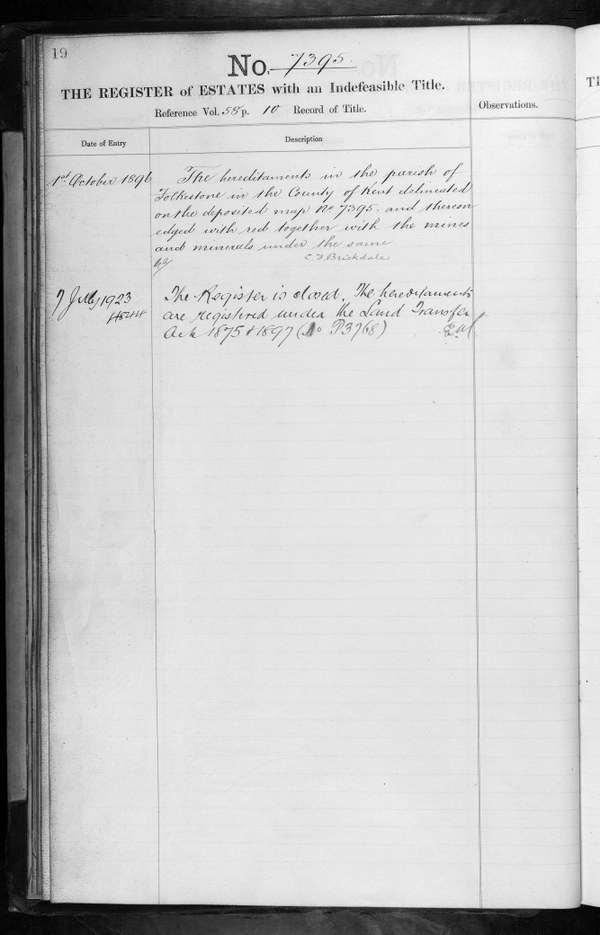 19
No. 7395.
THE REGISTER of ESTATES with an Indefeasible Title.
Reference Vol. 58 p. 10 Record of Title.
Observations.
Date of Entry
Description
1st October 1896
The hereditaments in the parish of
Folkestone in the County of Kent delineated
on the deposited map No 7395. and thereon
edged with red together with the mines
and minerals under the same.
C F Brickdale
7 July 1923
The Register is closed. The hereditaments
are registered under the Land Transfer
Acts 1875 & 1897 (No P3768)